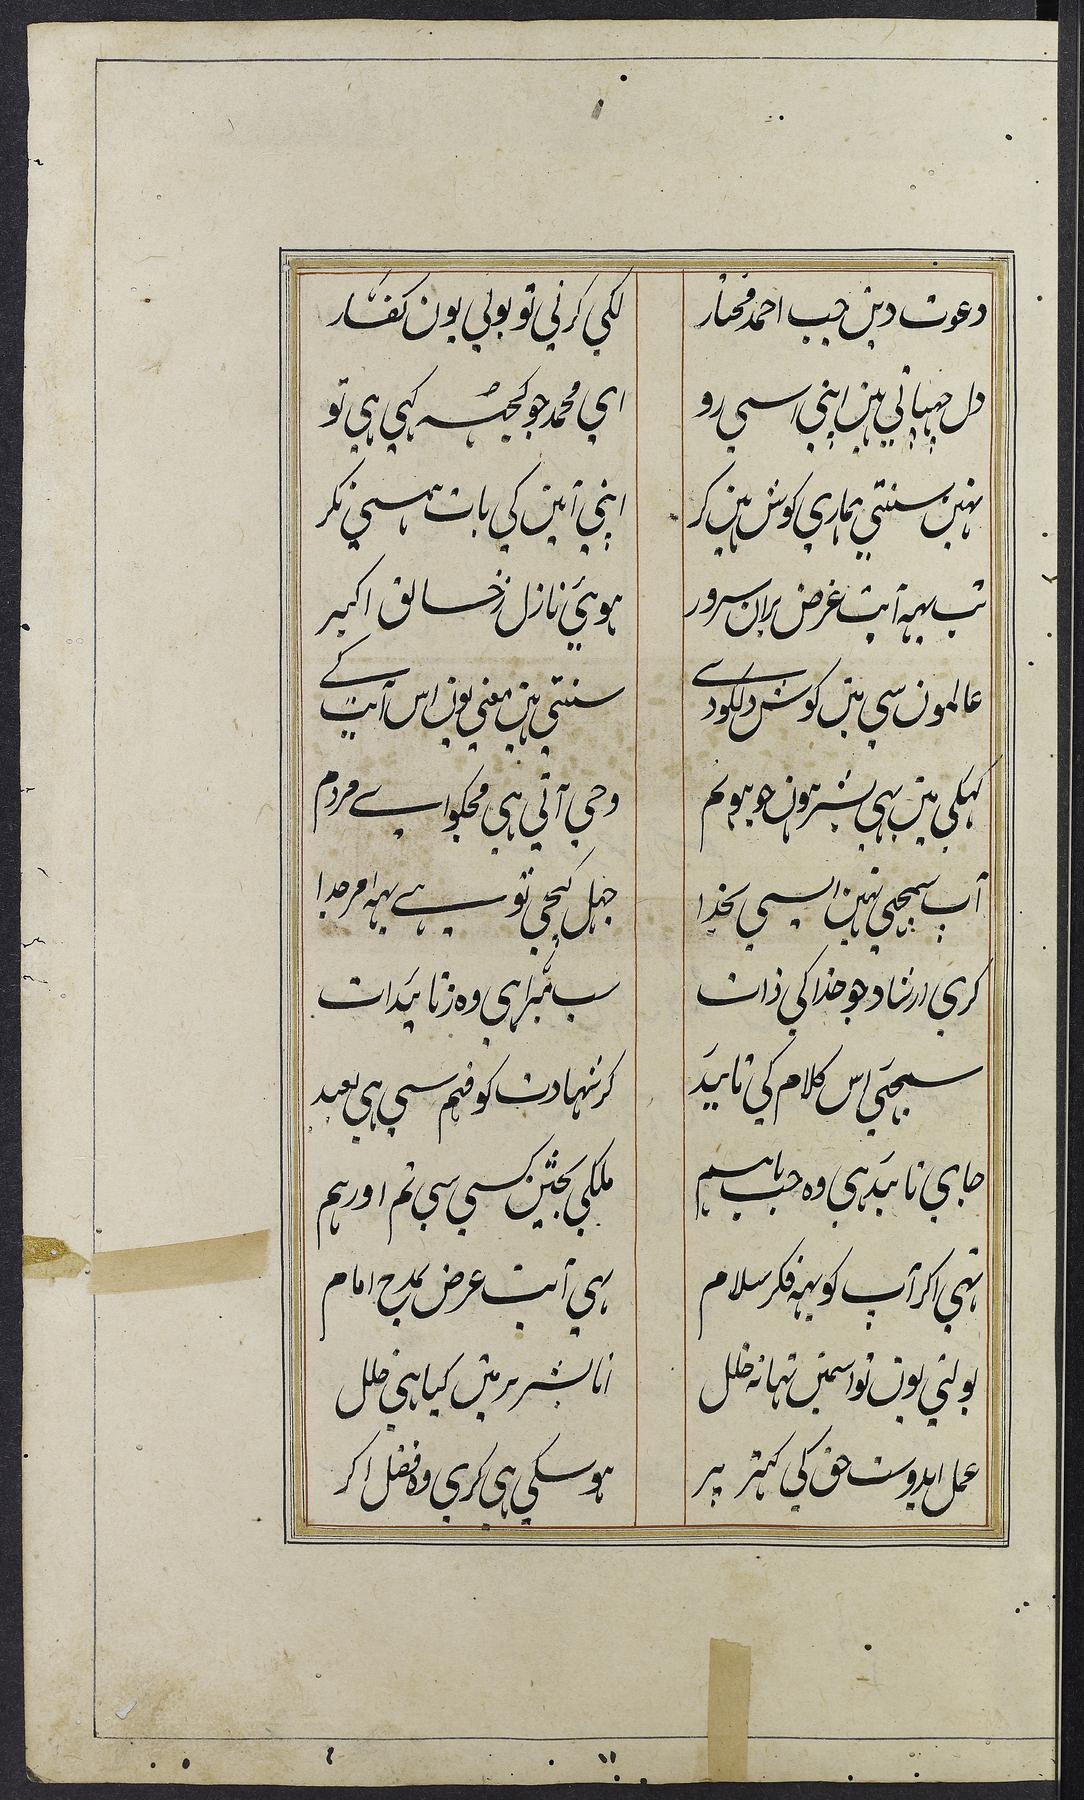 دعوت دین جب احمد مختار
لگی کرنی تو بولی یون کفّار
دل چهپاتی هین اپنی اسی رو
ای محمد جو کچهہ کہی ہی تو
نہین سنتی ہماری کوش ہین کر
اپنی آئین کی بات ہمسی نکر
تب یہہ آیت غرض بران سرور
ہوئی نازل ز خالق اکبر
عالمون سی مین کوش دل کو دے
سنتی ہین معنی یون اس آیت کے
کہکی مین بہی بشر ہون جو ہو تم
وحی آتی ہی مجکو اے مردم
آپ سمجہی نہین اسی بخدا
جہل کیجی تو ہے یہہ امر جدا
کری ارشاد جو خدا کی ذات
سب مبرا ہی وہ ز تائیدات
سمجہئی اس کلام کی تائید
کر شہادت کو فہم سی ہی بعید
جای تائید ہی وہ جب باہم
ملکی بحثین کسی سی تم اور ہم
تہی اکر آپ کو یہہ فکر سلام
ہی آیت عرض بمدح امام
بولتی یون تو اسمین تہا نہ خلل
انا بشر مین کیا ہی خلل
عمل ایدوست حق کی کمتر پر
ہو سکی ہی کری وہ فضل اکر